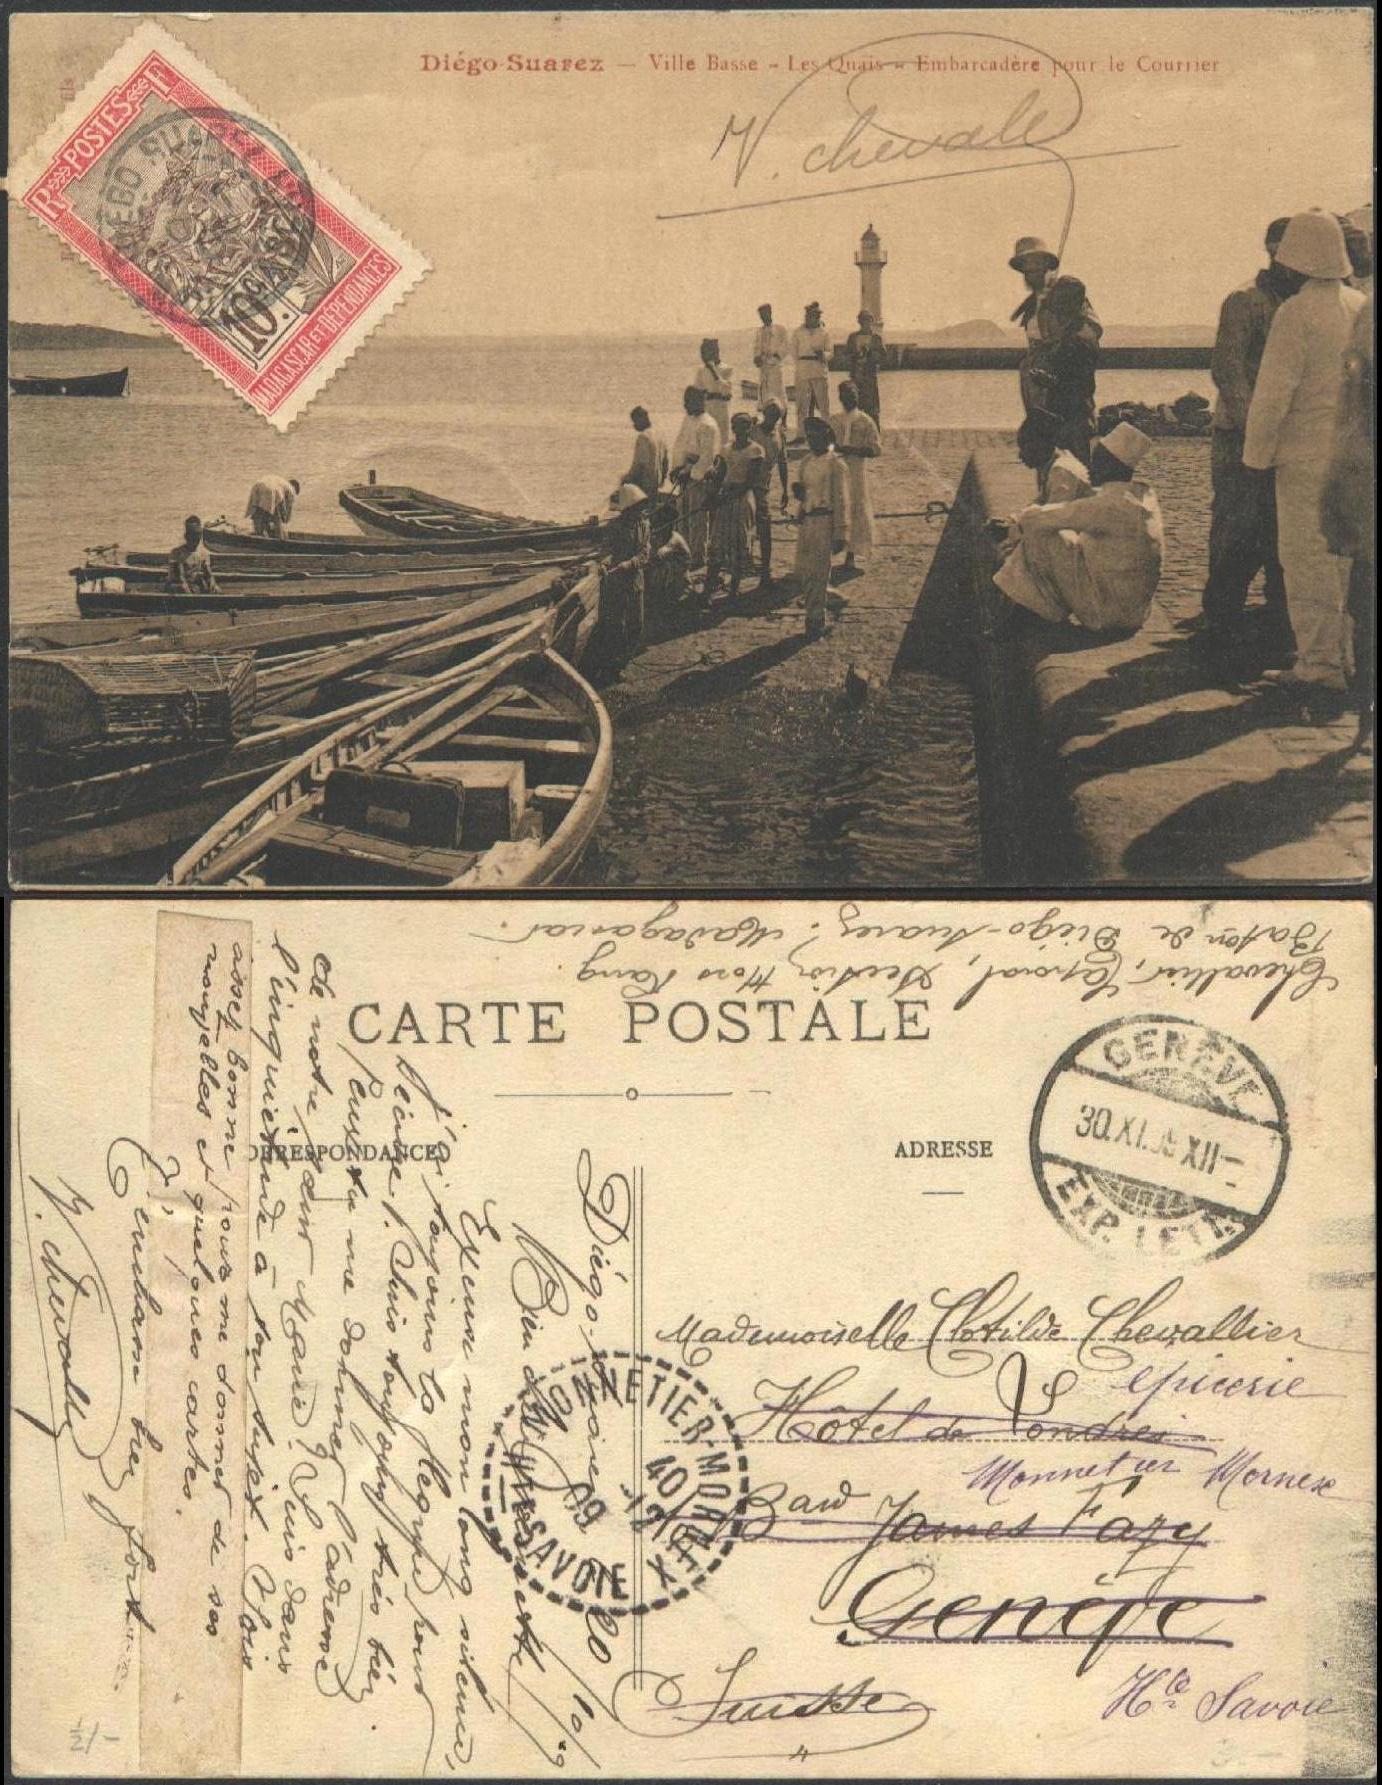 Diégo-Suarez — Ville Basse - Les Quais - Embarcadère pour le Courrier
V. Chevalle
RF POSTES
10c.
MADAGASCAR ET DÉPENDANCES
Chevallier, Caporal, Section Hors Rang
Baton de Diégo-Suarez. Madagascar.
CARTE POSTALE
CORRESPONDANCE
ADRESSE
GENÈVE
30.XI.09 XII
EXP. LETT.
Diégo-Suarez 20/10/09
Bien chère
Excuse mon long silence,
j'ai toujours la flegme pour
écrire. Suis toujours très bien
Peux tu me donner l'adresse
de notre sœur Marie? Suis dans
l'inquiétude à son sujet. Sois
assez bonne pour me donner de ses
nouvelles et quelques cartes.
J' t'embrasse bien fort
V. Chevalle
MONNETIER-MORNEX
HTE SAVOIE
12
09
Mademoiselle Clotilde Chevallier
épicerie
Hôtel de Londres
Monnetier Mornex
Bard James Fazy
Genève
Hte Savoie
Suisse
1/2/-